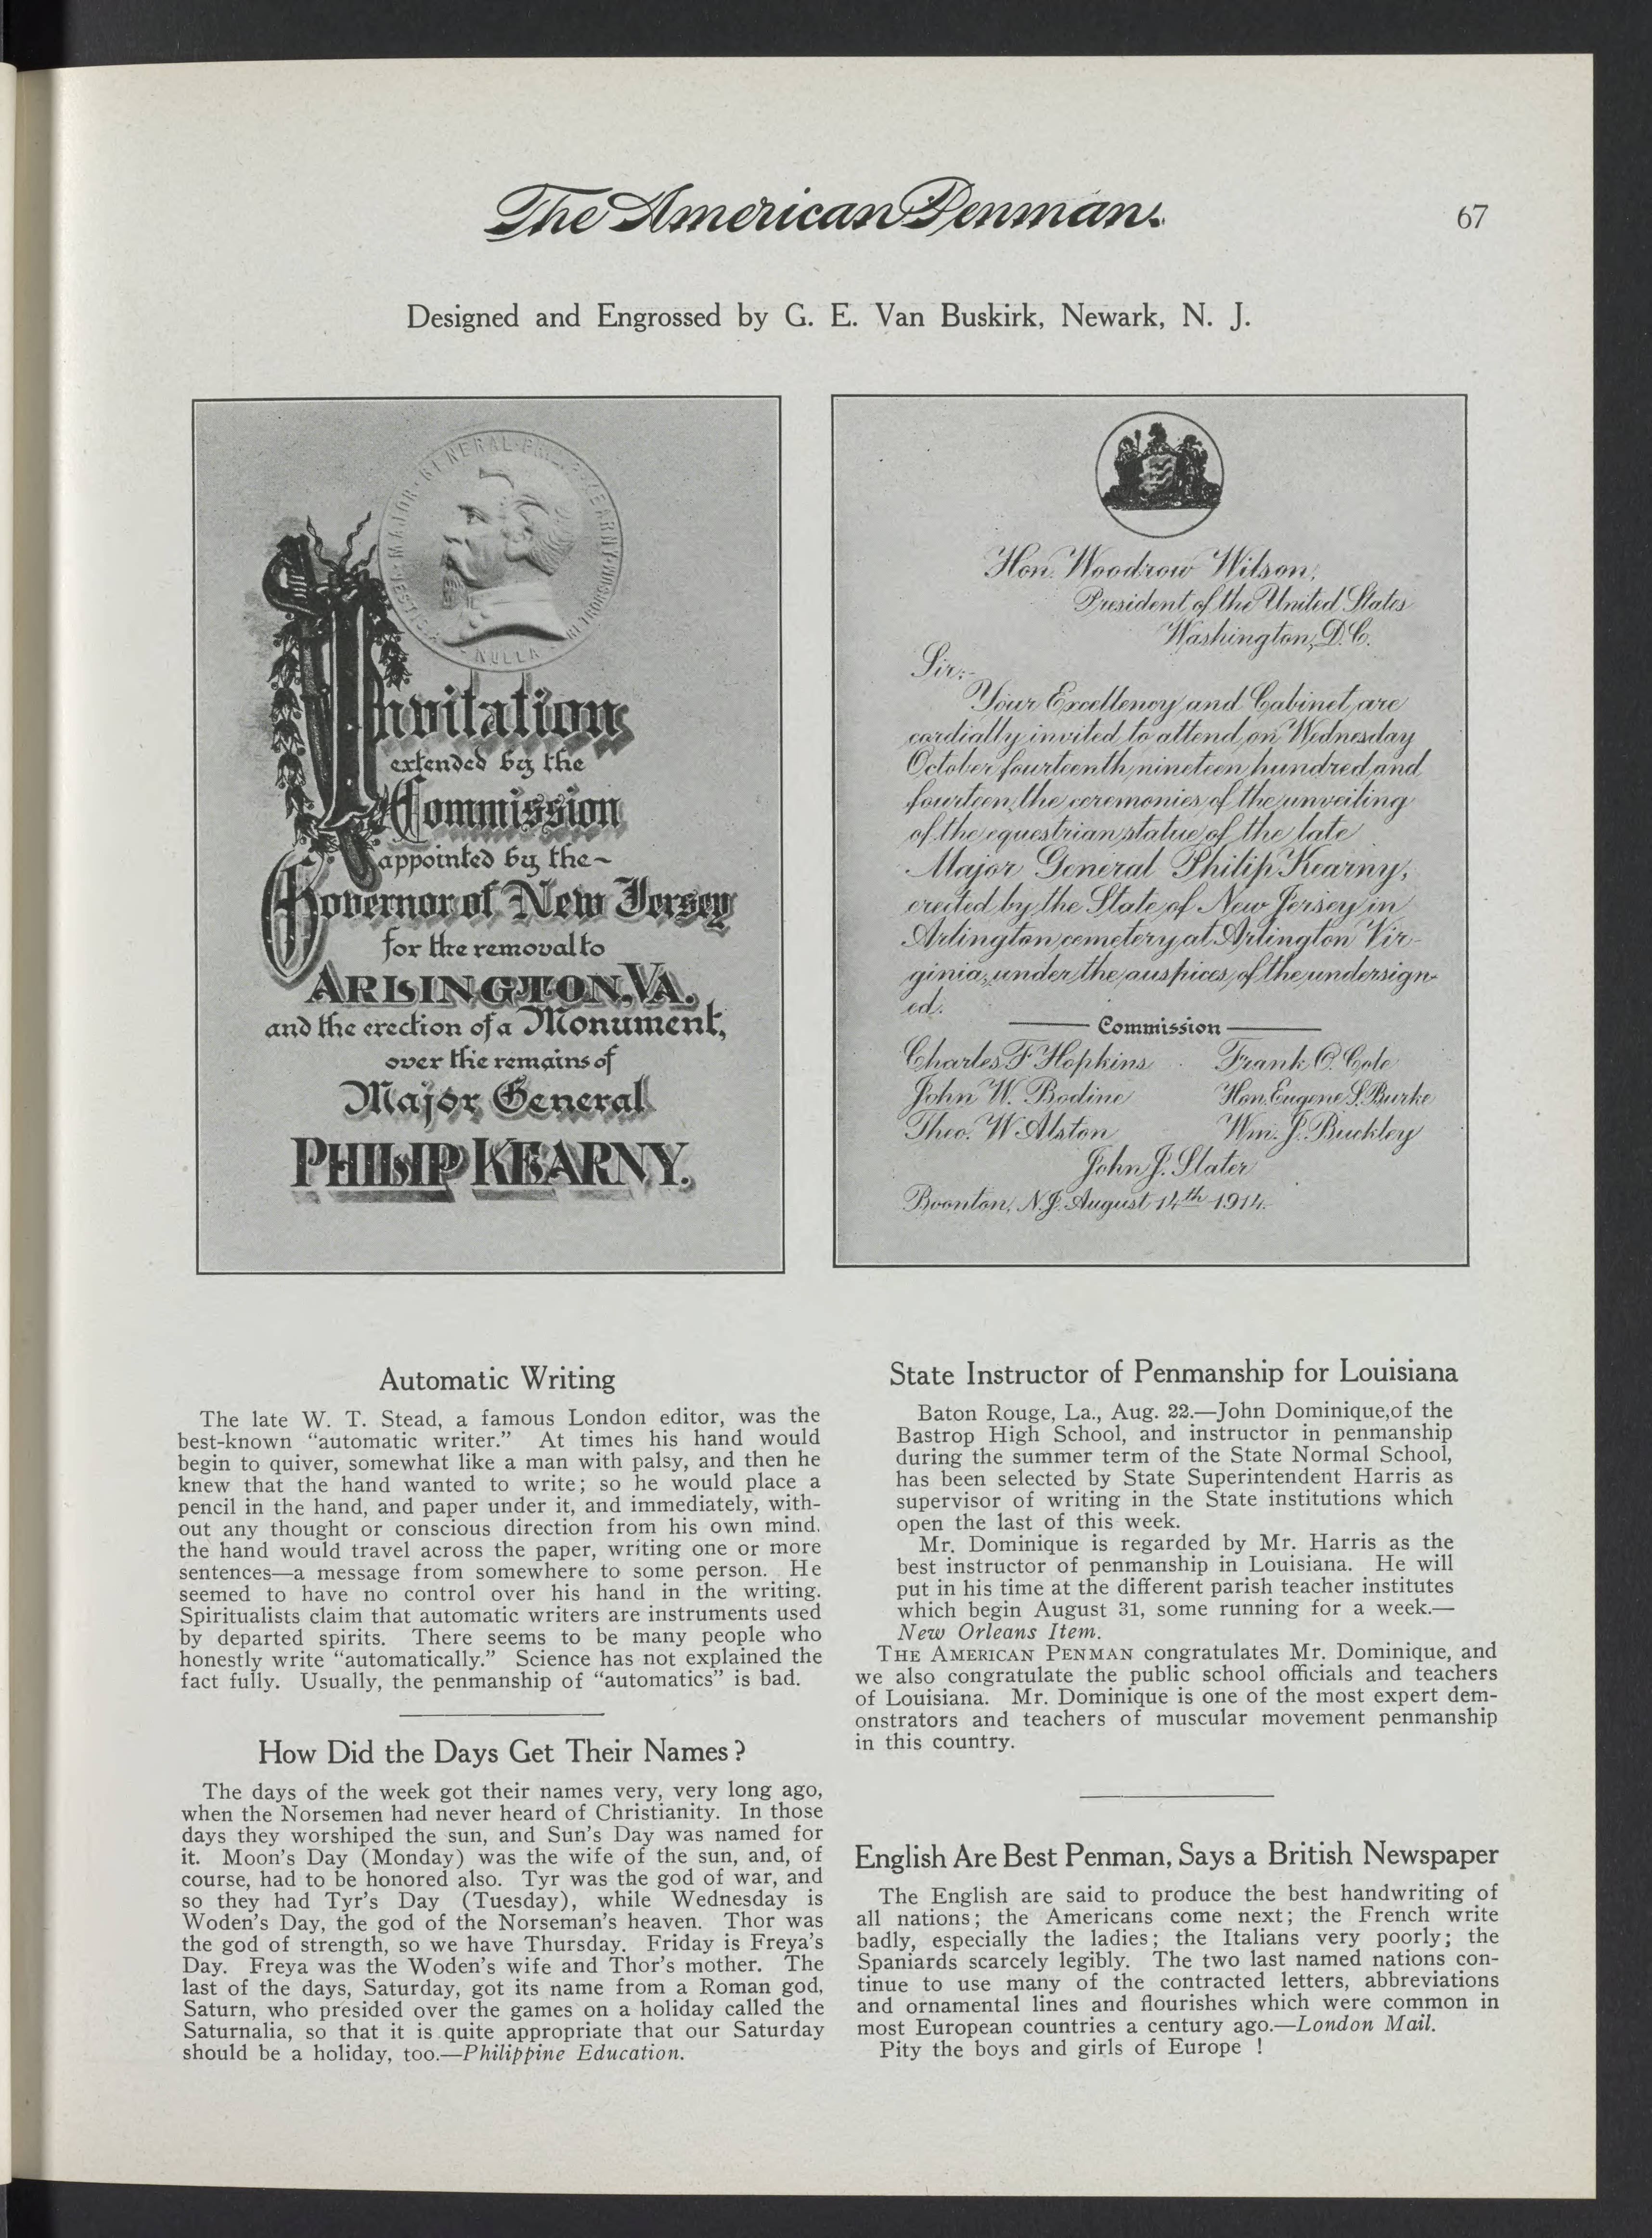 The American Penman.
67
Designed and Engrossed by G. E. Van Buskirk, Newark, N. J.
MAJOR · GENERAL · PHILIP · KEARNY ·
NULLA
Invitation
extended by the
Commission
appointed by the~
Governor of New Jersey
for the removal to
ARLINGTON, VA.
and the erection of a Monument,
over the remains of
Major General
PHILIP KEARNY.
Hon. Woodrow Wilson,
President of the United States
Washington, D.C.
Sir:-
Your Excellency and Cabinet are
cordially invited to attend on Wednesday
October fourteenth nineteen hundred and
fourteen, the ceremonies of the unveiling
of the equestrian statue of the late
Major General Philip Kearny,
erected by the State of New Jersey in
Arlington cemetery at Arlington Vir-
ginia, under the auspices of the undersign-
ed.
Commission
Charles F Hopkins Frank O. Cole
John W. Bodine Hon. Eugene S. Burke
Theo. W. Alston Wm. J. Buckley
John J. Slater
Boonton, N.J. August 14th 1914.
Automatic Writing
The late W. T. Stead, a famous London editor, was the
best-known "automatic writer." At times his hand would
begin to quiver, somewhat like a man with palsy, and then he
knew that the hand wanted to write; so he would place a
pencil in the hand, and paper under it, and immediately, with-
out any thought or conscious direction from his own mind,
the hand would travel across the paper, writing one or more
sentences—a message from somewhere to some person. He
seemed to have no control over his hand in the writing.
Spiritualists claim that automatic writers are instruments used
by departed spirits. There seems to be many people who
honestly write "automatically." Science has not explained the
fact fully. Usually, the penmanship of "automatics" is bad.
How Did the Days Get Their Names?
The days of the week got their names very, very long ago,
when the Norsemen had never heard of Christianity. In those
days they worshiped the sun, and Sun's Day was named for
it. Moon's Day (Monday) was the wife of the sun, and, of
course, had to be honored also. Tyr was the god of war, and
so they had Tyr's Day (Tuesday), while Wednesday is
Woden's Day, the god of the Norseman's heaven. Thor was
the god of strength, so we have Thursday. Friday is Freya's
Day. Freya was the Woden's wife and Thor's mother. The
last of the days, Saturday, got its name from a Roman god,
Saturn, who presided over the games on a holiday called the
Saturnalia, so that it is quite appropriate that our Saturday
should be a holiday, too.—Philippine Education.
State Instructor of Penmanship for Louisiana
Baton Rouge, La., Aug. 22.—John Dominique,of the
Bastrop High School, and instructor in penmanship
during the summer term of the State Normal School,
has been selected by State Superintendent Harris as
supervisor of writing in the State institutions which
open the last of this week.
Mr. Dominique is regarded by Mr. Harris as the
best instructor of penmanship in Louisiana. He will
put in his time at the different parish teacher institutes
which begin August 31, some running for a week.—
New Orleans Item.
THE AMERICAN PENMAN congratulates Mr. Dominique, and
we also congratulate the public school officials and teachers
of Louisiana. Mr. Dominique is one of the most expert dem-
onstrators and teachers of muscular movement penmanship
in this country.
English Are Best Penman, Says a British Newspaper
The English are said to produce the best handwriting of
all nations; the Americans come next; the French write
badly, especially the ladies; the Italians very poorly; the
Spaniards scarcely legibly. The two last named nations con-
tinue to use many of the contracted letters, abbreviations
and ornamental lines and flourishes which were common in
most European countries a century ago.—London Mail.
Pity the boys and girls of Europe !